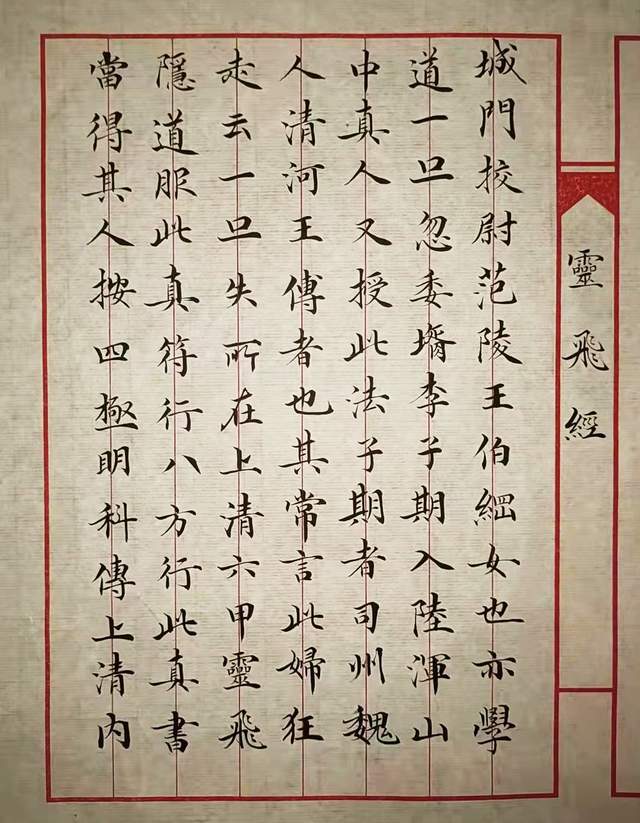 靈飛經
城門挍尉范陵王伯綱女也亦學
道一旦忽委壻李子期入陸渾山
中真人又授此法子期者司州魏
人清河王傳者也其常言此婦狂
走云一旦失所在上清六甲靈飛
隱道服此真符行八方行此真書
當得其人按四極明科傳上清內